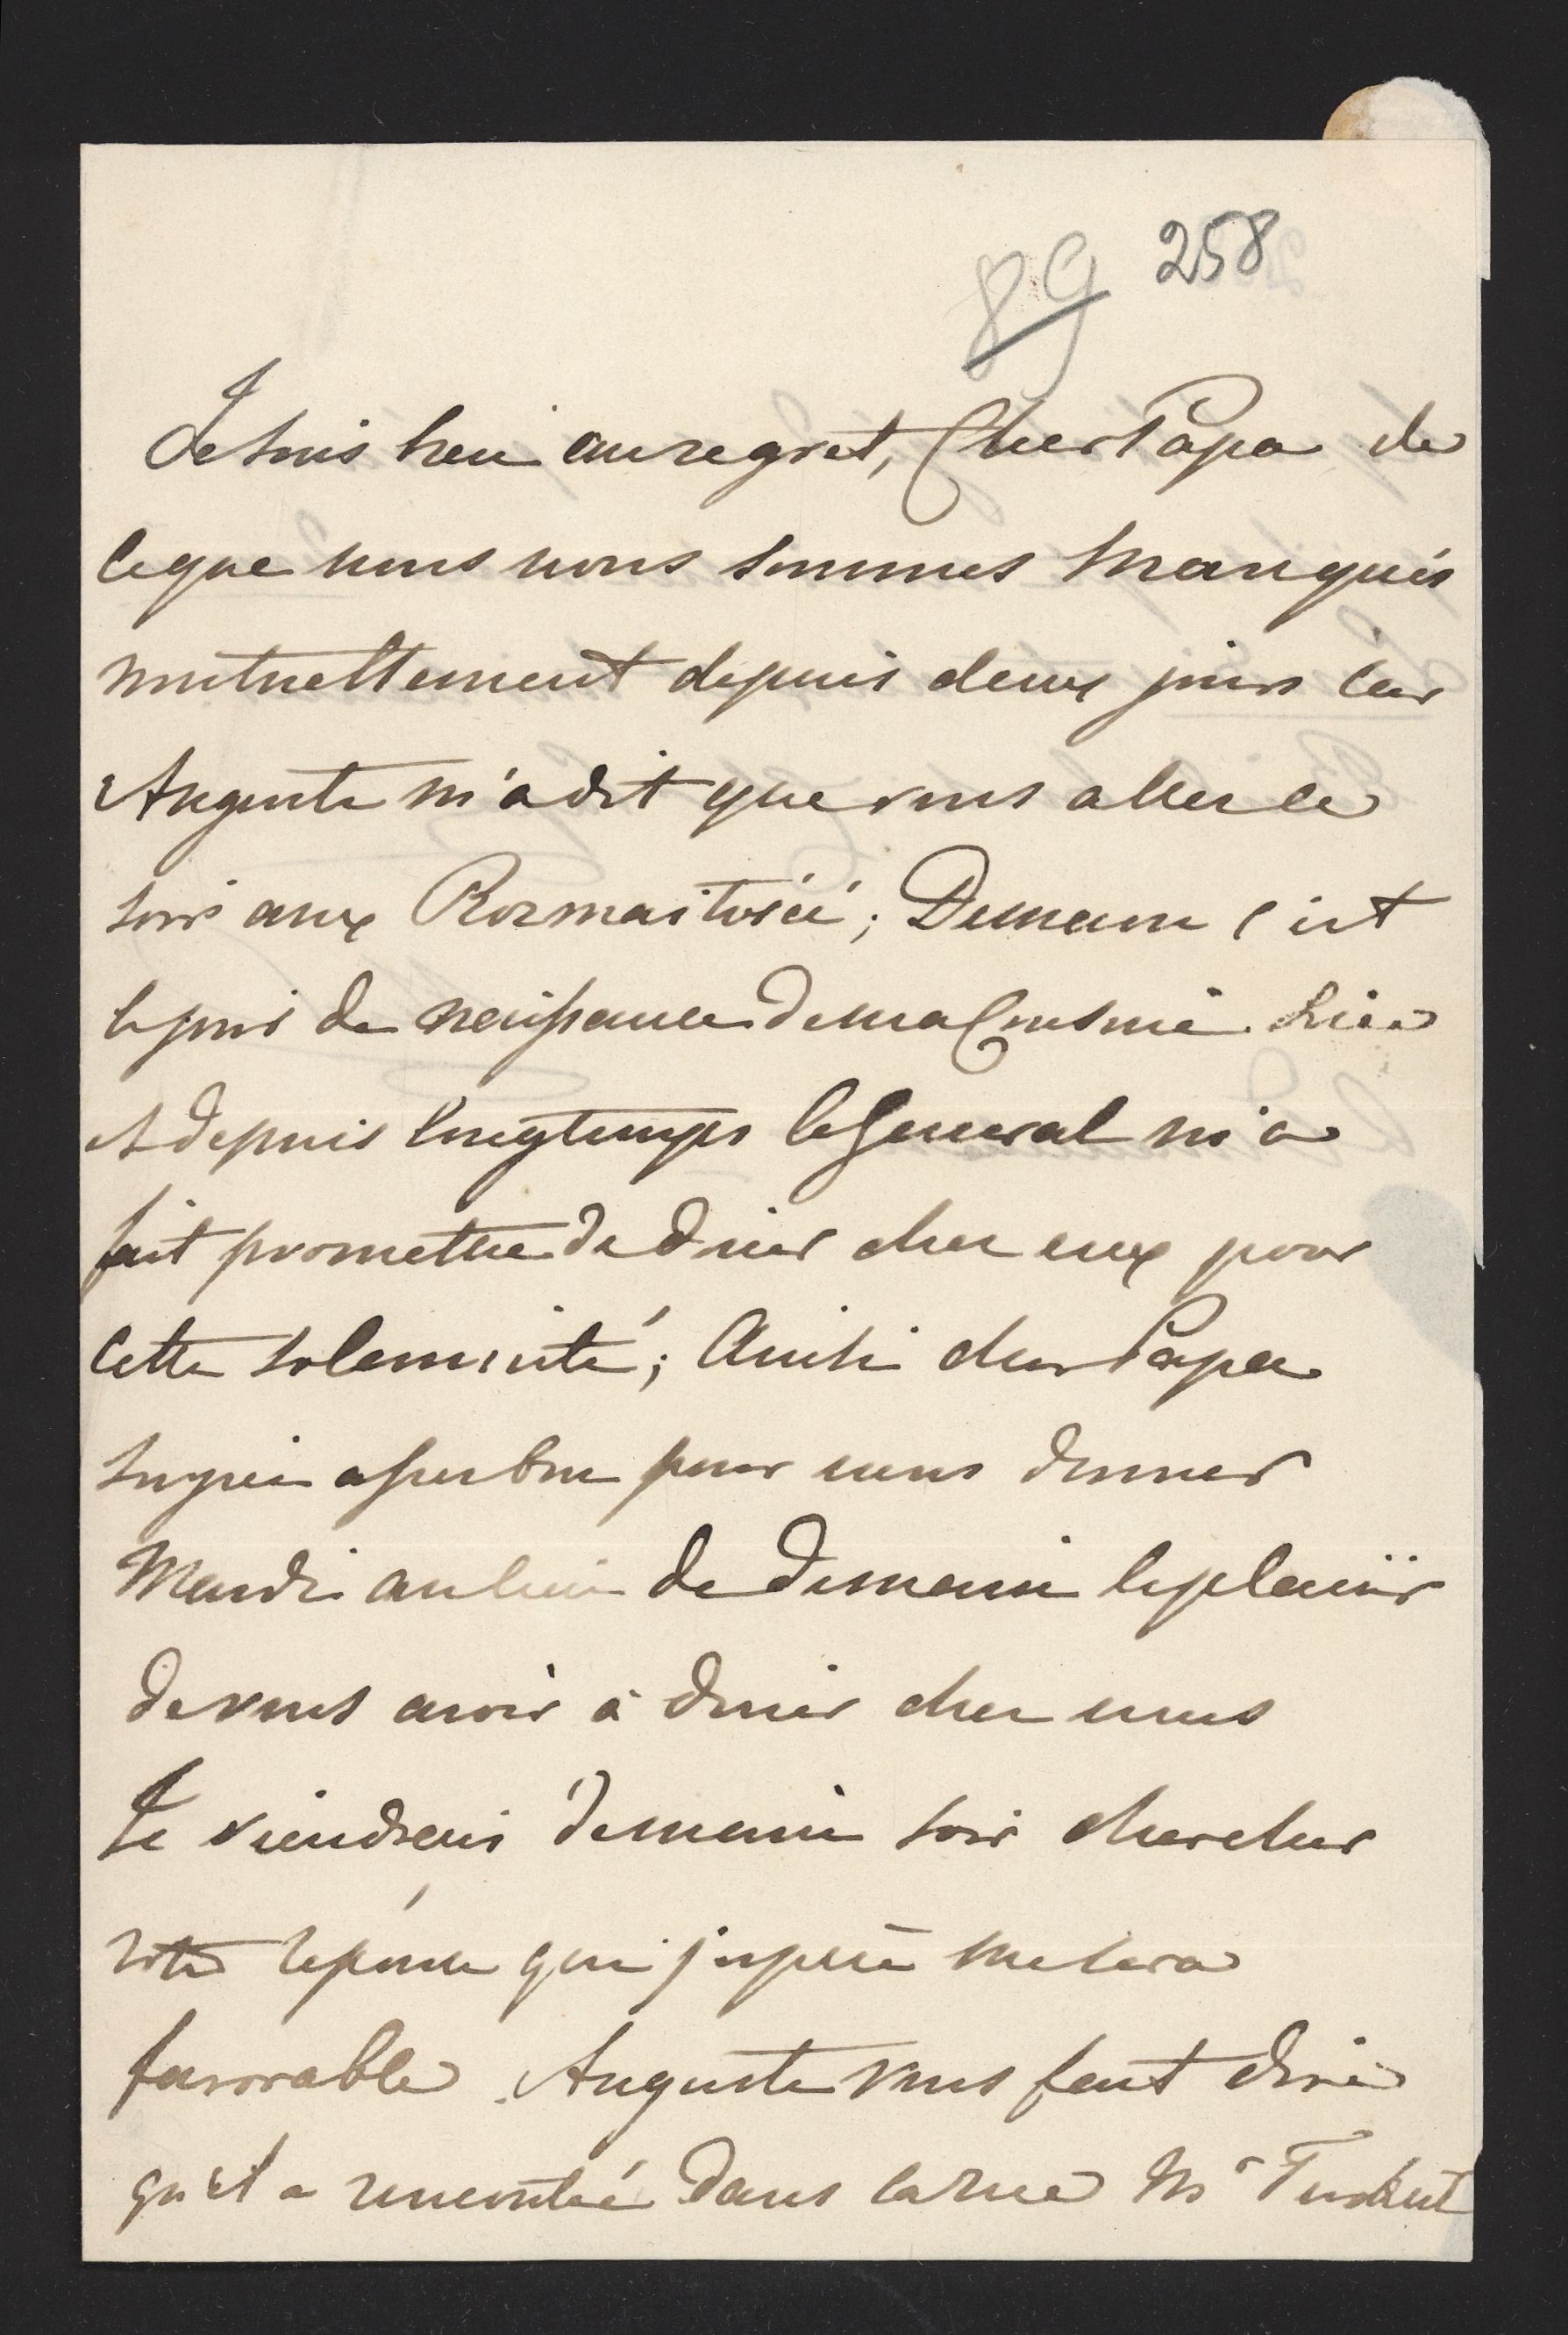 89 258
Je suis bien au regret, Cher Papa de
ce que nous nous sommes manqués
mutuellement depuis deux jours car
Auguste m'a dit que vous allez ce
soir aux Rozmaitości; Demain c'est
le jour de naissance de ma Cousine
et depuis longtemps le General m'a
fait promettre de diner chez eux pour
cette solemnité; Ainsi cher Papa
soyez assez bon pour nous donner
Mardi au lieu de demain le plaisir
de vous avoir à diner chez nous
Je viendrais demain soir chercher
votre reponse qui j'espère me sera
favorable. Auguste vous fait dire
qu'il a rencontré dans la rue Mr